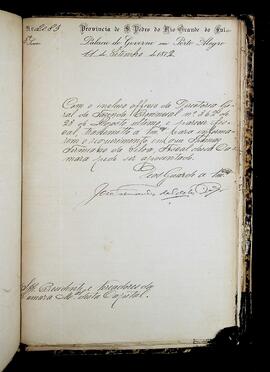 Provincia de S. Pedro do Rio Grande do Sul,
Palacio do Governo em Porto Alegre
11 de Setembro de 1872
Com o incluso officio da Directoria Geral
da Fazenda Provincial nº 362 de
28 de Agosto ultimo, e parecer fis-
cal, transmetto a Vmces para informa-
rem o requerimento em que
da Silva, Fiscal dessa Ca-
mara pede ser aposentado.
Deos Guarde a Vmces
José Fernandes da Costa
Presidente e Vereadores da
Camara Mal desta Capital.